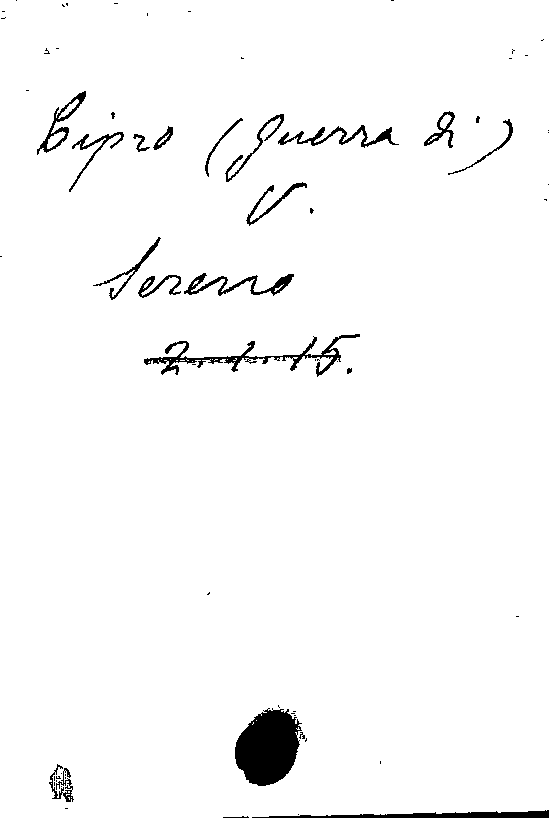 Cipro (Guerra di)
V.
Sereno
2. 1. 15.